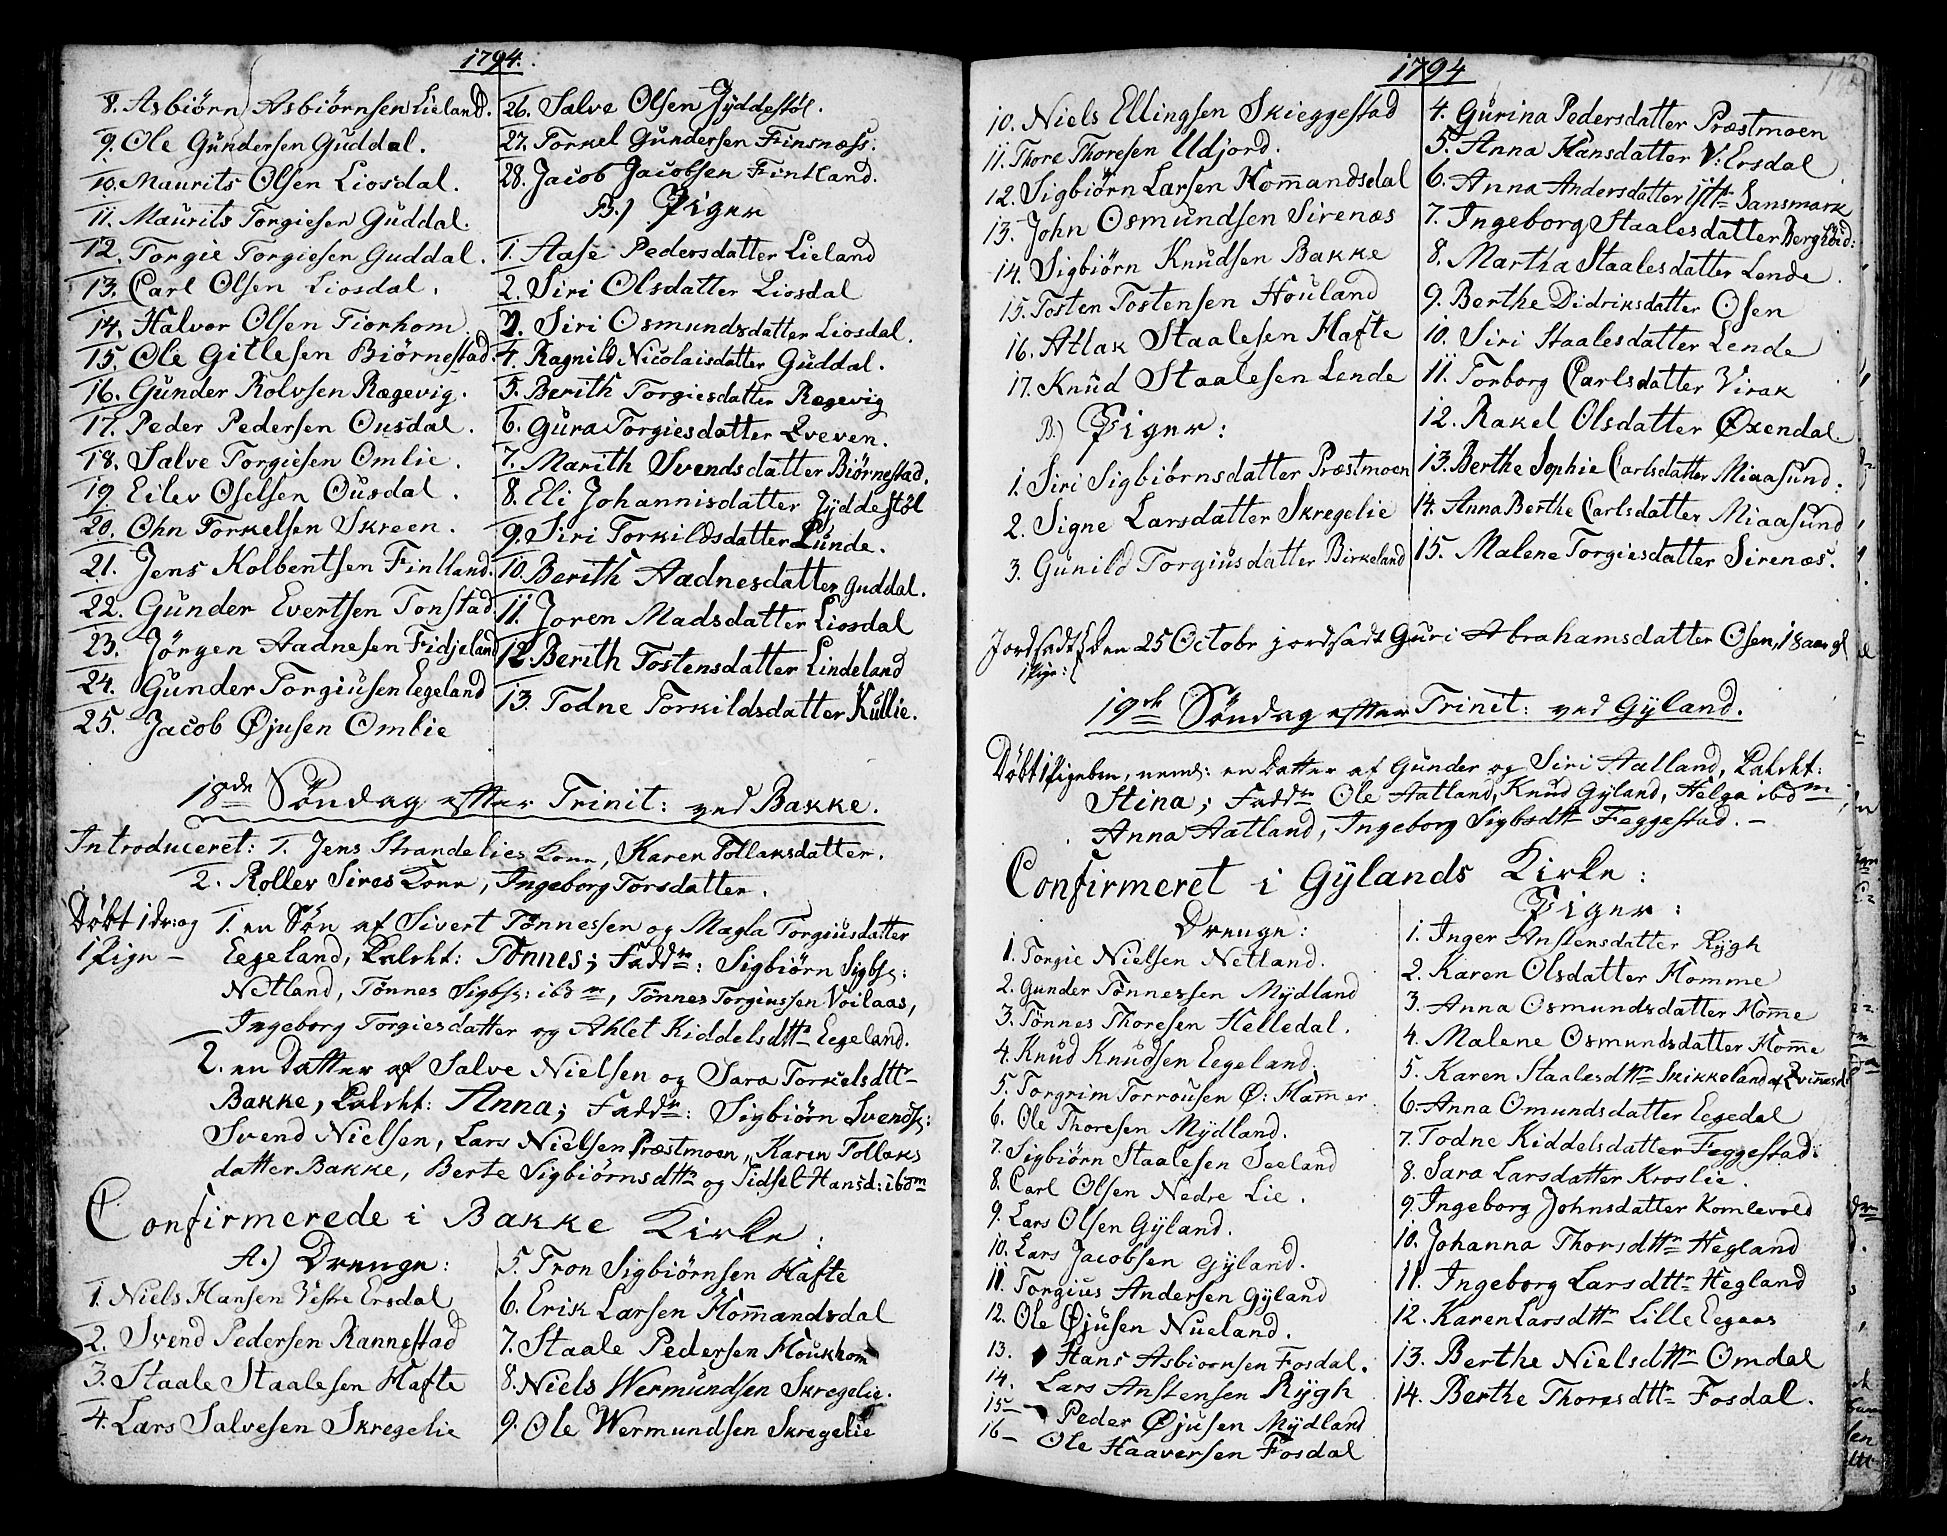 1794.
8. Asbiörn Asbiörnsen Lieland.
9. Ole Gundersen Guddal.
10. Maurits Olsen Liosdal.
11. Maurits Torgiesen Guddal.
12. Torgie Torgiesen Guddal.
13. Carl Olsen Liosdal.
14. Halvor Olsen Tiorhom.
15. Ole Gitlesen Biörnestad.
16. Gunder Rolvsen Rægevig.
17. Peder Pedersen Ousdal.
18. Salve Torgiesen Omlie.
19 Eilev Oselsen Ousdal.
20. Ohn Torkelsen Skreen.
21. Jens Kolbentsen Fintland.
22. Gunder Evertsen Tonstad.
23. Jörgen Aadnesen Fidjeland
24. Gunder Torgiusen Eegeland
25. Jacob Øjusen Omlie
26. Salve Olsen Jyddestöl.
27. Torkel Gundersen Finsnæss.
28. Jacob Jacobsen Fintland.
B.) Piger
1. Aase Pedersdatter Lieland
2. Siri Olsdatter Liosdal
3. Siri Osmundsdatter Liosdal.
4. Ragnild Nicolaisdatter Guddal.
5. Berith Torgiesdatter Rægevig
6. Gura Torgiesdatter Qveven.
7. Marith Svendsdatter Biörnestad.
8. Eli Johannisdatter Jyddestöl
9. Siri Torkildsdatter Lunde.
10. Berith Aadnesdatter Guddal.
11. Joren Madsdatter Liosdal
12. Berith Tostensdatter Lindeland
13. Todne Torkildsdatter Kullie.
18de Söndag efter Trinit: ved Bakke.
Introduceret: 1. Jens Strandelies Kone, Karen Tollaksdatter.
2. Rollev Sires Kone, Ingeborg Torsdatter.
Döbt 1 dr: og 1. en Sön af Sivert Tönnessen og Magla Torgiusdatter
1 Pige – Eegeland, Kaldet: Tönnes; Faddre: Sigbiörn Sigbs:
Netland, Tönnes Sigbs: ibdm, Tönnes Torgiussen Voilaas,
Ingeborg Torgiesdatter og Ahlet Kiddelsdttr Eegeland.
2. en Datter af Salve Nielsen og Sara Torkelsdttr
Bakke, Kaldet: Anna; Faddre: Sigbiörn Svends:
Svend Nielsen, Lars Nielsen Præstmoen, Karen Tollaks
datter Bakke, Berte Sigbiörnsdttr og Sidsel Hansd: ibdm
Confirmerede i Bakke Kirke:
A.) Drenge:
1. Niels Hansen Vestre Ersdal
2. Svend Pedersen Rannestad
3. Staale Staalesen Hafte
4. Lars Salvesen Skregelie
5. Tron Sigbiörnsen Hafte
6. Erik Larsen Homandsdal
7. Staale Pedersen Houkhom
8. Niels Wermundsen Skregelie.
9. Ole Wermundsen Skregelie
1794
10. Niels Ellingsen Skieggestad
11. Thore Thoresen Udjord.
12. Sigbiörn Larsen Homandsdal
13. John Osmundsen Sirenæs
14. Sigbiörn Knudsen Bakke
15. Tosten Tostensen Houland
16. Atlak Staalesen Hafte
17. Knud Staalesen Lende
B.) Piger:
1. Siri Sigbiornsdatter Præstmoen
2. Signe Larsdatter Skregelie
3. Gunild Torgiusdatter Birkeland
4. Gurina Pedersdatter Præstmoen
5. Anna Hansdatter V: Ersdal
6. Anna Andersdatter Sansmark
7. Ingeborg Staalesdatter
8. Martha Staalesdatter Lende.
9. Berthe Didriksdatter Osen
10. Siri Staalesdatter Lende
11. Torborg Carlsdatter Virak
12. Rakel Olsdatter Øxendal
13. Berthe Sophie Carlsdatter Miaasund.
14. Anna Berthe Carlsdatter Miaasund
15. Malene Torgiesdatter Sirenæs.
Jordsadt den 25 Octobr jordsadt Guri Abrahamsdatter Osen, 18 aar gl
1 Pige:
19de Söndag efter Trinit: ved Gyland.
Döbt 1 Pigebn, neml: en Datter af Gunder og Siri Aatland, Kaldet:
Stina; Faddre Ole Aatland, Knud Gyland, Helga ibdm
Anna Aatland, Ingeborg Sigbsdttr Feggestad. –
Confirmeret i Gylands Kirke:
Drenge:
1. Torgie Nielsen Netland.
2. Gunder Tönnessen Mydland
3. Tönnes Thoresen Helledal.
4. Knud Knudsen Eegeland.
5. Torgrim Torrousen Ø: Hamer.
6. Ole Thoresen Mydland.
7. Sigbiörn Staalesen Seeland
8. Carl Olsen Nedre Lie.
9. Lars Olsen Gyland.
10. Lars Jacobsen Gyland.
11. Torgius Andersen Gyland
12. Ole Øjusen Nueland.
13. Hans Asbiornsen Fosdal.
14. Lars Anstensen Rygh
15– Peder Øjusen Mydland
16– Ole Haaversen Fosdal
Piger:
1. Inger Anstensdatter Rygh
2. Karen Olsdatter Homme
3. Anna Osmundsdatter Home
4. Malene Osmundsdatter Home
5. Karen Staalesdttr Skikkeland af Qvinesd
6. Anna Omundsdatter Eegedal
7. Todne Kiddelsdatter Feggestad:
8. Sara Larsdatter Kroslie.
9. Ingeborg Johnsdatter Komlevold
10. Johanna Thorsdttr Hegland
11. Ingeborg Larsdttr Hegland
12. Karen Larsdttr Lille Eegaas
13. Berthe Nielsdttr Omdal
14. Berthe Thoresdttr Fosdal.